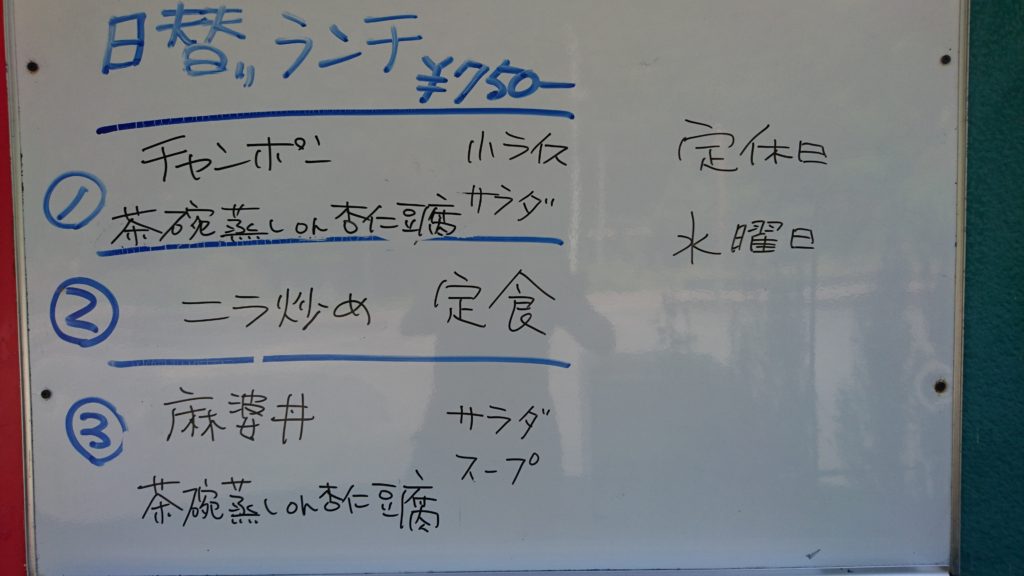 日替りランチ
¥750-
① チャンポン 小ライス
茶碗蒸し or 杏仁豆腐 サラダ
② ニラ炒め 定食
③ 麻婆丼 サラダ
スープ
茶碗蒸し or 杏仁豆腐
定休日
水曜日